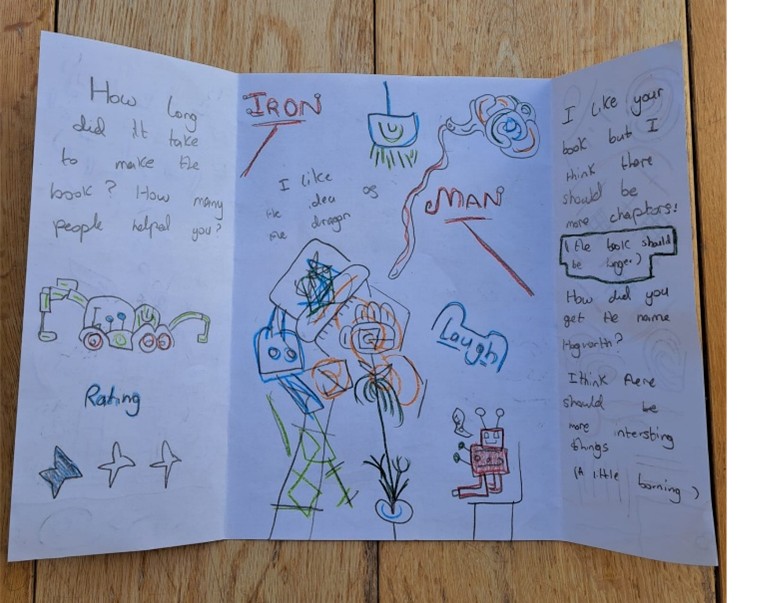 How long
did it take
to make the
book? How many
people helped you?
Rating
IRON
I like
the idea of
the dragon
MAN
Laugh
I like your
book but I
think there
should be
more chaptors!
(the book should
be longer)
How did you
get the name
Hogworth?
I think there
should be
more intersting
things
(A little borning)